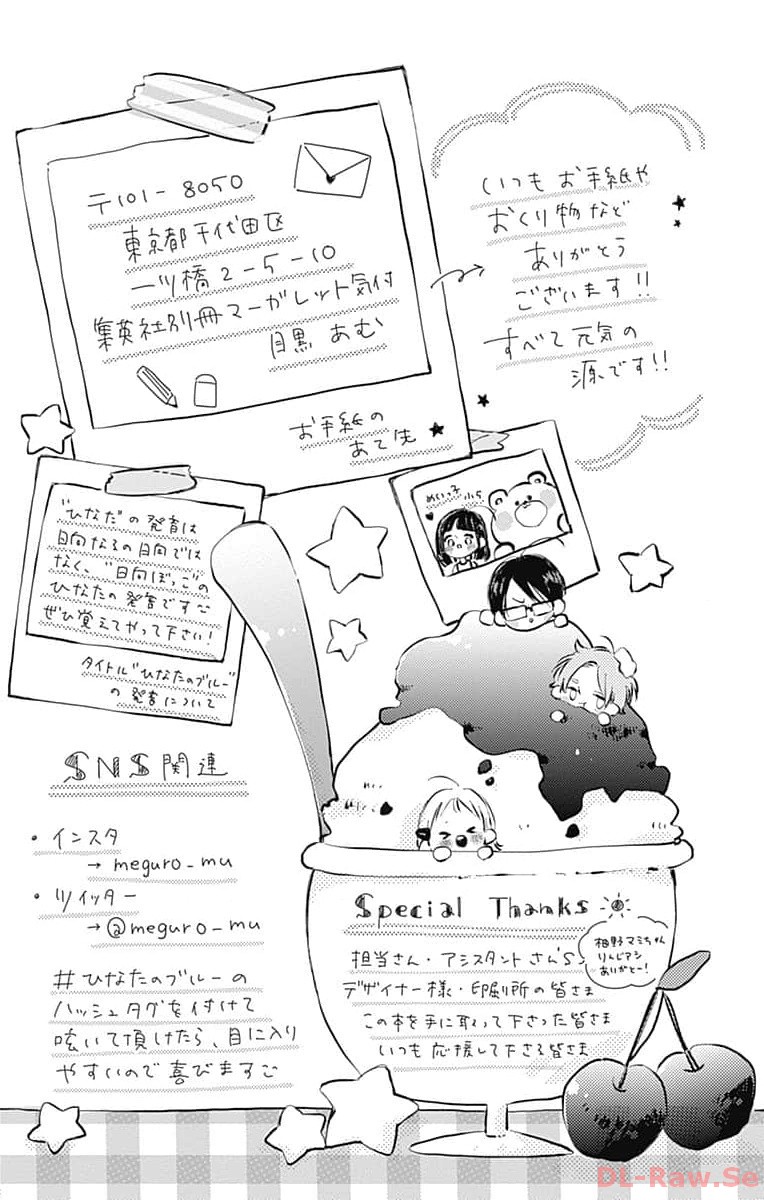 〒101-8050
東京都千代田区
一ツ橋2-5-10
集英社別冊マーガレット気付
目黒 あむ
お手紙の
あて先
いつもお手紙や
おくり物など
ありがとう
ございます!!
すべて元気の
源です!!
"ひなた"の発音は
日向なるの日向では
なく、"日向ぼっこ"の
ひなたの発音です。
ぜひ覚えてやって下さい!
タイトル"ひなたのブルー"
の発音について
めいっ子
SNS関連
・インスタ
→ meguro_mu
・ツイッター
→@meguro_mu
#ひなたのブルーの
ハッシュタグを付けて
呟いて頂けたら、目に入り
やすいので喜びます。
Special Thanks
担当さん・アシスタントさん's
デザイナー様・印刷所の皆さま
この本を手に取って下さった皆さま
いつも応援して下さる皆さま
柚野マミちゃん
りんじアシ
ありがとー!
DL-Raw.Se